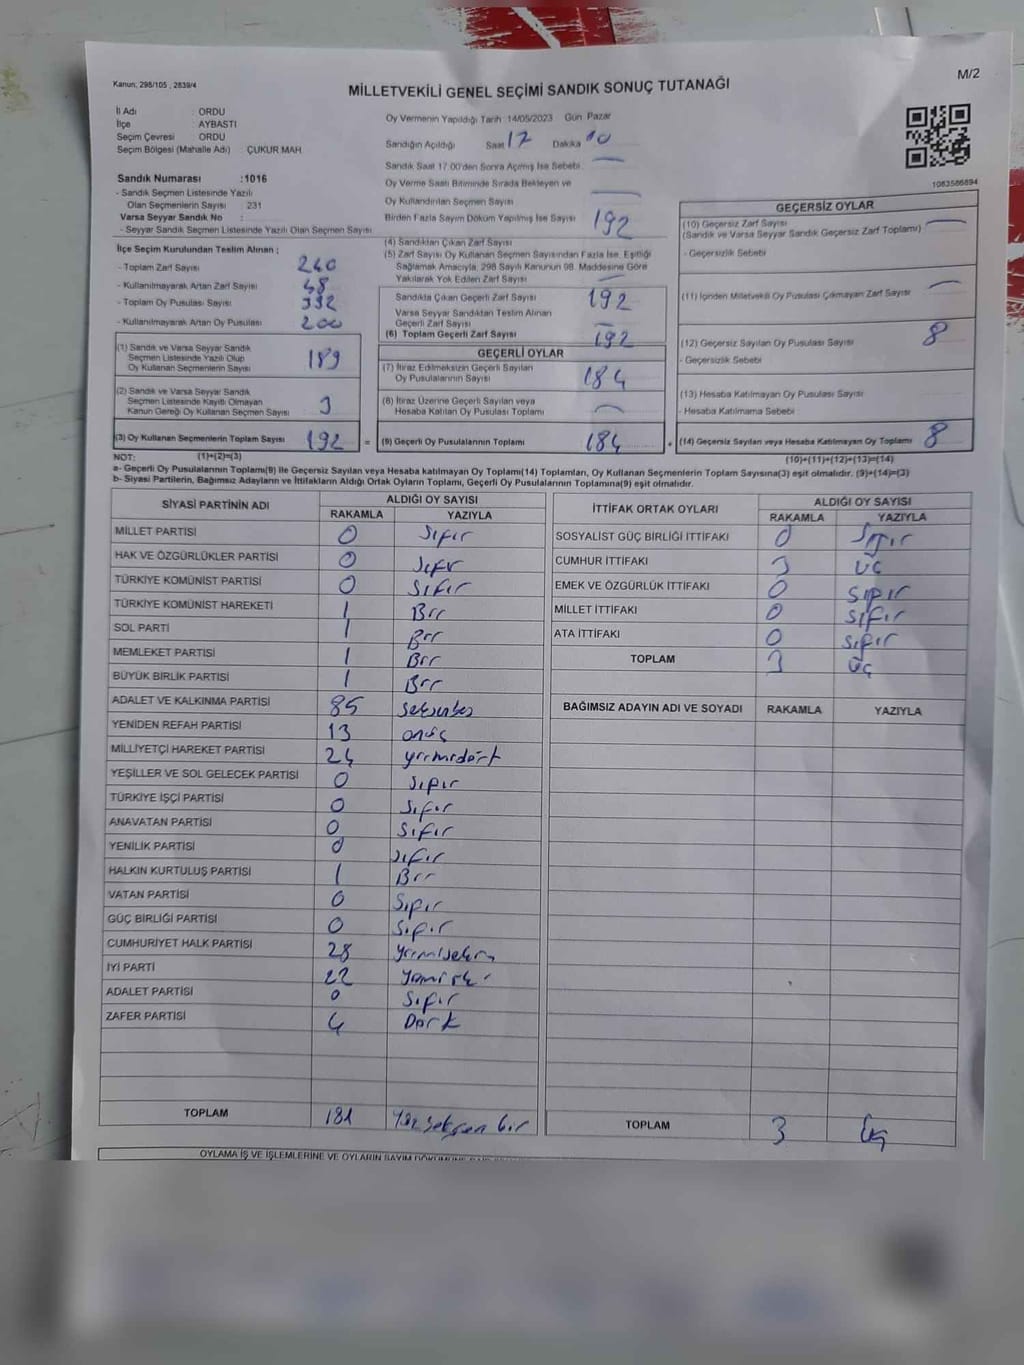 Kanun; 298/105 , 2839/4
M/2
MİLLETVEKİLİ GENEL SEÇİMİ SANDIK SONUÇ TUTANAĞI
İl Adı : ORDU
İlçe : AYBASTI
Seçim Çevresi : ORDU
Seçim Bölgesi (Mahalle Adı) : ÇUKUR MAH.
Oy Vermenin Yapıldığı Tarih : 14/05/2023 Gün Pazar
Sandığın Açıldığı Saat 17 Dakika
Sandık Saat 17.00'den Sonra Açılmış İse Sebebi
Oy Verme Saati Bitiminde Sırada Bekleyen ve
Oy Kullandırılan Seçmen Sayısı
Birden Fazla Sayım Döküm Yapılmış İse Sayısı 192
Sandık Numarası :1016
- Sandık Seçmen Listesinde Yazılı
Olan Seçmenlerin Sayısı : 231
Varsa Seyyar Sandık No :
- Seyyar Sandık Seçmen Listesinde Yazılı Olan Seçmen Sayısı
1083586894
İlçe Seçim Kurulundan Teslim Alınan ;
- Toplam Zarf Sayısı 240
- Kullanılmayarak Artan Zarf Sayısı 48
- Toplam Oy Pusulası Sayısı 392
- Kullanılmayarak Artan Oy Pusulası 200
(1) Sandık ve Varsa Seyyar Sandık
Seçmen Listesinde Yazılı Olup
Oy Kullanan Seçmenlerin Sayısı 189
(2) Sandık ve Varsa Seyyar Sandık
Seçmen Listesinde Kayıtlı Olmayan
Kanun Gereği Oy Kullanan Seçmen Sayısı 3
(3) Oy Kullanan Seçmenlerin Toplam Sayısı 192 =
(1)+(2)=(3)
(4) Sandıktan Çıkan Zarf Sayısı
(5) Zarf Sayısı Oy Kullanan Seçmen Sayısından Fazla İse, Eşitliği
Sağlamak Amacıyla, 298 Sayılı Kanunun 98. Maddesine Göre
Yakılarak Yok Edilen Zarf Sayısı
Sandıkta Çıkan Geçerli Zarf Sayısı 192
Varsa Seyyar Sandıktan Teslim Alınan
Geçerli Zarf Sayısı
(6) Toplam Geçerli Zarf Sayısı 192
GEÇERLİ OYLAR
(7) İtiraz Edilmeksizin Geçerli Sayılan
Oy Pusulalarının Sayısı 184
(8) İtiraz Üzerine Geçerli Sayılan veya
Hesaba Katılan Oy Pusulası Toplamı
(9) Geçerli Oy Pusulalarının Toplamı 184 +
GEÇERSİZ OYLAR
(10) Geçersiz Zarf Sayısı
(Sandık ve Varsa Seyyar Sandık Geçersiz Zarf Toplamı)
- Geçersizlik Sebebi
(11) İçinden Milletvekili Oy Pusulası Çıkmayan Zarf Sayısı
(12) Geçersiz Sayılan Oy Pusulası Sayısı 8
- Geçersizlik Sebebi
(13) Hesaba Katılmayan Oy Pusulası Sayısı
- Hesaba Katılmama Sebebi
(14) Geçersiz Sayılan veya Hesaba Katılmayan Oy Toplamı 8
(10)+(11)+(12)+(13)=(14)
NOT:
a- Geçerli Oy Pusulalarının Toplamı(9) ile Geçersiz Sayılan veya Hesaba katılmayan Oy Toplamı(14) Toplamları, Oy Kullanan Seçmenlerin Toplam Sayısına(3) eşit olmalıdır. (9)+(14)=(3)
b- Siyasi Partilerin, Bağımsız Adayların ve İttifakların Aldığı Ortak Oyların Toplamı, Geçerli Oy Pusulalarının Toplamına(9) eşit olmalıdır.
SİYASİ PARTİNİN ADI
ALDIĞI OY SAYISI
RAKAMLA YAZIYLA
MİLLET PARTİSİ 0 Sıfır
HAK VE ÖZGÜRLÜKLER PARTİSİ 0 Sıfır
TÜRKİYE KOMÜNİST PARTİSİ 0 Sıfır
TÜRKİYE KOMÜNİST HAREKETİ 1 Bir
SOL PARTİ 1 Bir
MEMLEKET PARTİSİ 1 Bir
BÜYÜK BİRLİK PARTİSİ 1 Bir
ADALET VE KALKINMA PARTİSİ 85 seksenbeş
YENİDEN REFAH PARTİSİ 13 onüç
MİLLİYETÇİ HAREKET PARTİSİ 24 yirmidört
YEŞİLLER VE SOL GELECEK PARTİSİ 0 Sıfır
TÜRKİYE İŞÇİ PARTİSİ 0 Sıfır
ANAVATAN PARTİSİ 0 Sıfır
YENİLİK PARTİSİ 0 Sıfır
HALKIN KURTULUŞ PARTİSİ 1 Bir
VATAN PARTİSİ 0 Sıfır
GÜÇ BİRLİĞİ PARTİSİ 0 Sıfır
CUMHURİYET HALK PARTİSİ 28 yirmisekiz
İYİ PARTİ 22 yirmiiki
ADALET PARTİSİ 0 Sıfır
ZAFER PARTİSİ 4 Dört
TOPLAM 181 Yüzseksen bir
İTTİFAK ORTAK OYLARI
ALDIĞI OY SAYISI
RAKAMLA YAZIYLA
SOSYALİST GÜÇ BİRLİĞİ İTTİFAKI 0 Sıfır
CUMHUR İTTİFAKI 3 üç
EMEK VE ÖZGÜRLÜK İTTİFAKI 0 Sıfır
MİLLET İTTİFAKI 0 Sıfır
ATA İTTİFAKI 0 Sıfır
TOPLAM 3 üç
BAĞIMSIZ ADAYIN ADI VE SOYADI RAKAMLA YAZIYLA
TOPLAM 3 Üç
OYLAMA İŞ VE İŞLEMLERİNE VE OYLARIN SAYIM